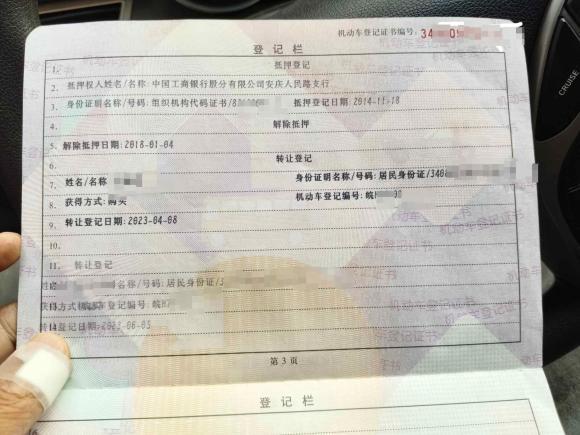 机动车登记证书编号: 34
登记栏
1. 抵押登记
2. 抵押权人姓名/名称:中国工商银行股份有限公司安庆人民路支行
3. 身份证明名称/号码:组织机构代码证书/8 抵押登记日期:2014-11-18
4. 解除抵押
5. 解除抵押日期:2018-01-04
6. 转让登记
7. 姓名/名称 身份证明名称/号码:居民身份证/340
8. 获得方式:购买 机动车登记编号:皖H
9. 转让登记日期:2023-04-08
10.
11. 转让登记
姓名 名称/号码:居民身份证/3
获得方式 机动车登记编号:皖H
转让登记日期:2023-06-05
第3页
登记栏
CRUISE
机动车登记证书